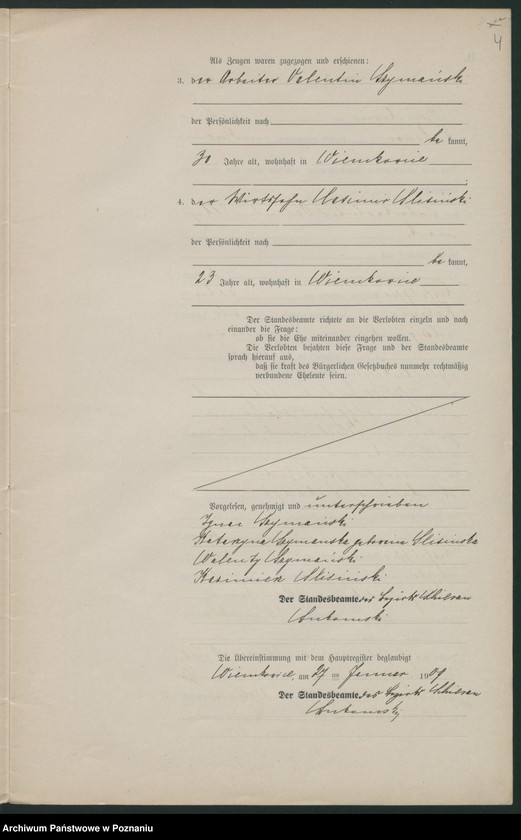 4
Als Zeugen waren zugezogen und erschienen:
3. der Arbeiter Valentin Szymański
der Persönlichkeit nach
be kannt,
30 Jahre alt, wohnhaft in Wiemkowice
4. der Wirtssohn Casimir Slisinski
der Persönlichkeit nach
be kannt,
23 Jahre alt, wohnhaft in Wiemkowice
Der Standesbeamte richtete an die Verlobten einzeln und nach
einander die Frage:
ob sie die Ehe miteinander eingehen wollen.
Die Verlobten bejahten diese Frage und der Standesbeamte
sprach hierauf aus,
daß sie kraft des Bürgerlichen Gesetzbuches nunmehr rechtmäßig
verbundene Eheleute seien.
Vorgelesen, genehmigt und unterschrieben
Ignac Szymański
Katarzyna Szymańska geborene Slisinska
Walenty Szymański
Kazimierz Slisiński
Der Standesbeamte. des Bezirks
Die Übereinstimmung mit dem Hauptregister beglaubigt
Wiemkowice, am 27 ten Januar 1909
Der Standesbeamte. des Bezirks
Archiwum Państwowe w Poznaniu